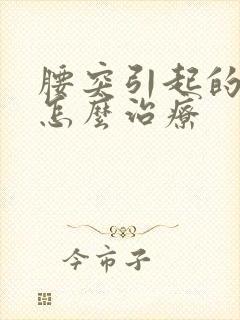 腰突引起的
怎麼治療
今市子